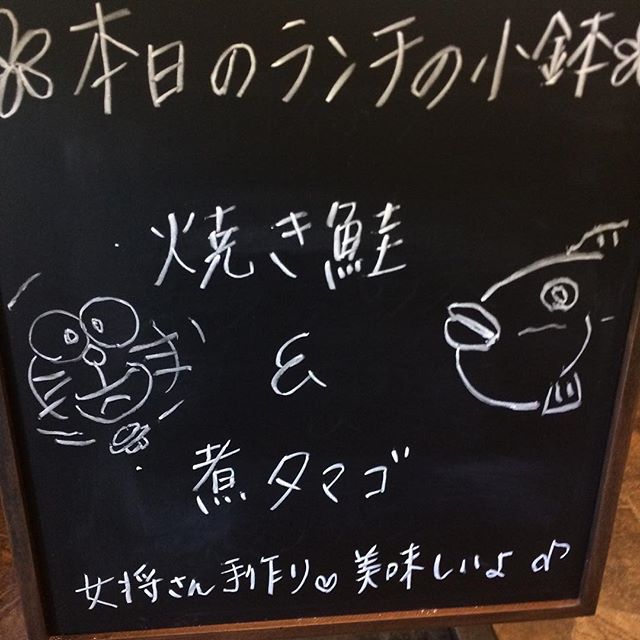 本日のランチの小鉢
焼き鮭
&
煮タマゴ
女将さん手作り♡美味しいよ♪